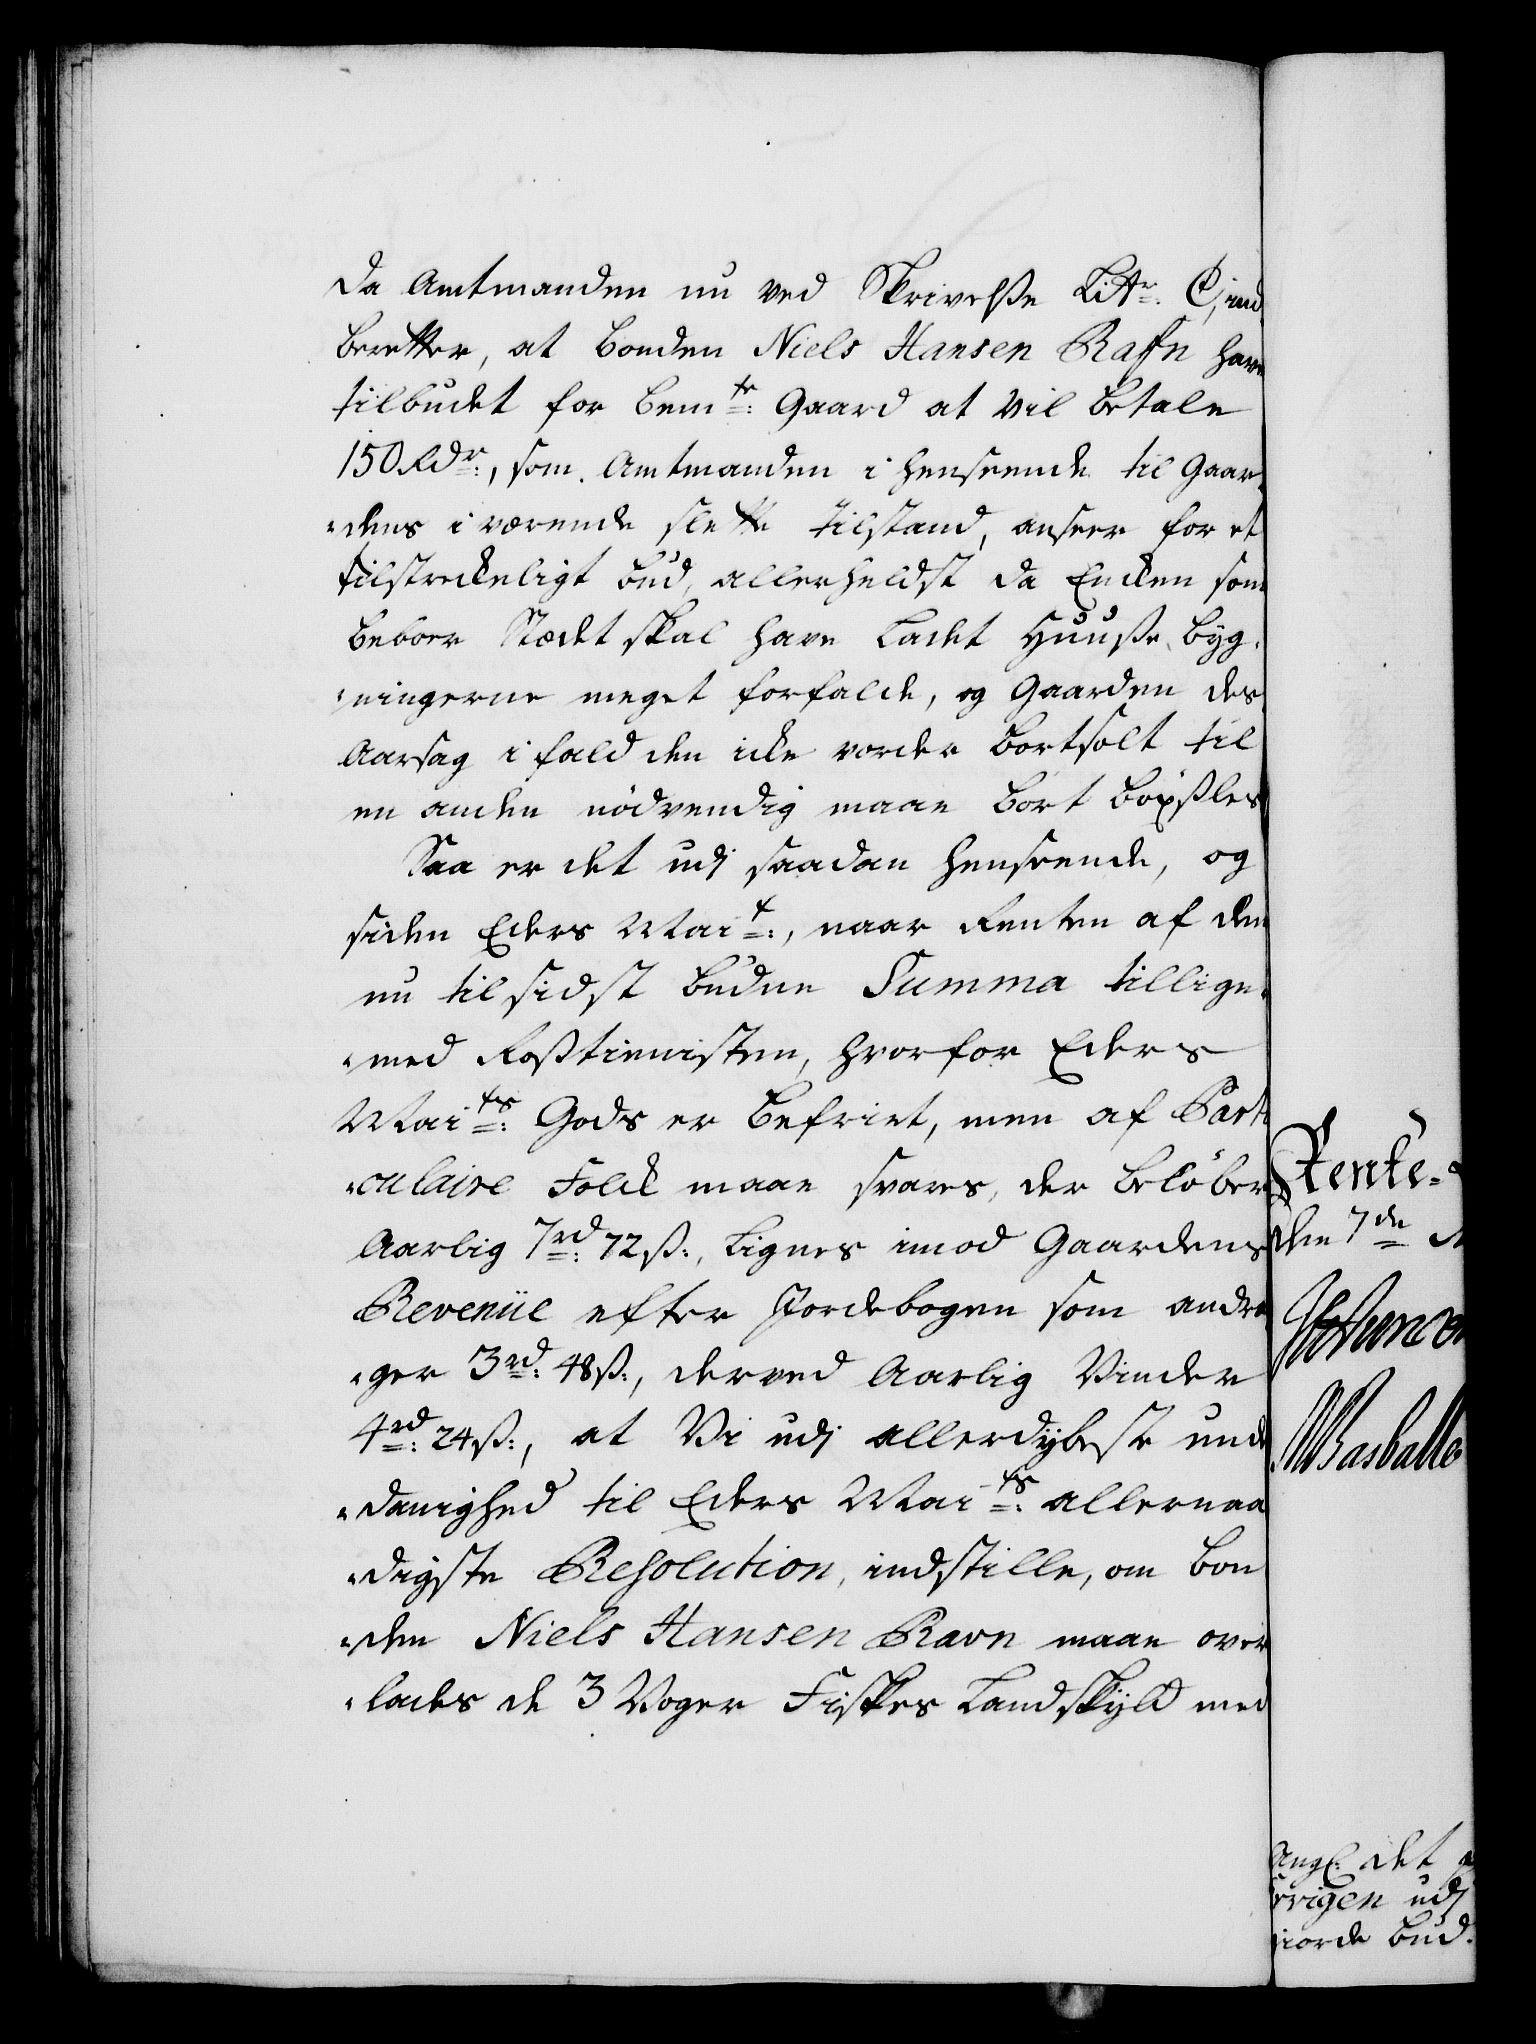 da Amtmanden nu ved Skrivelße Litr: C, ind
beretter, at bonden Niels Hansen Rafn have
tilbudet for bemte: Gaard at vil betale
150 Rdr:, som Amtmanden i henseende til Gaar-
-dens iværende slette Tilstand, anseer for et
tilstreckeligt bud, allerheldst da Encken som
beboer Stædet skal have ladet Huuße, byg-
-ningerne meget forfalde, og Gaarden des
Aarsag ifald den icke vorder bortsolt til
en anden nödvendig maae bort böxßles
Saa er det udj saadan henseende, og
siden Eders Mait:, naar Renten af den
nu til sidst budne Summa tillige-
-med Roßtienisten, hvorfor Eders
Maits: Gods er befriet, men af Parti
-culaire Folck maae svares, der belöber
Aarlig 7rd: 72ß:, lignes imod Gaardens
Revenüe efter Jordebogen som andra
-ger 3rd: 48ß:, derved Aarlig Vinder
4rd: 24ß:, at Vi udj allerdybeste unde
-danighed til Eders Maits: allernaa
-digste Resolution, indstille, om bon
-den Niels Hansen Ravn maae over
-lades de 3 Voger Fiskes Landskyld med
Rente-
den 7de
det
udj
giorde bud.